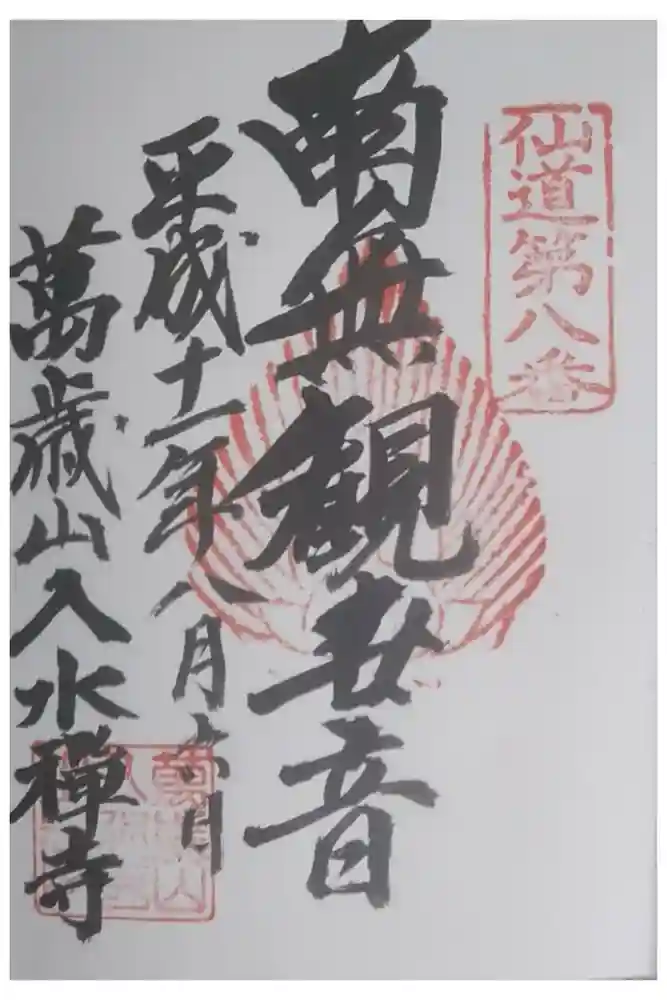 仙道第八番
南無観世音
平成十一年八月
萬歳山入水禅寺